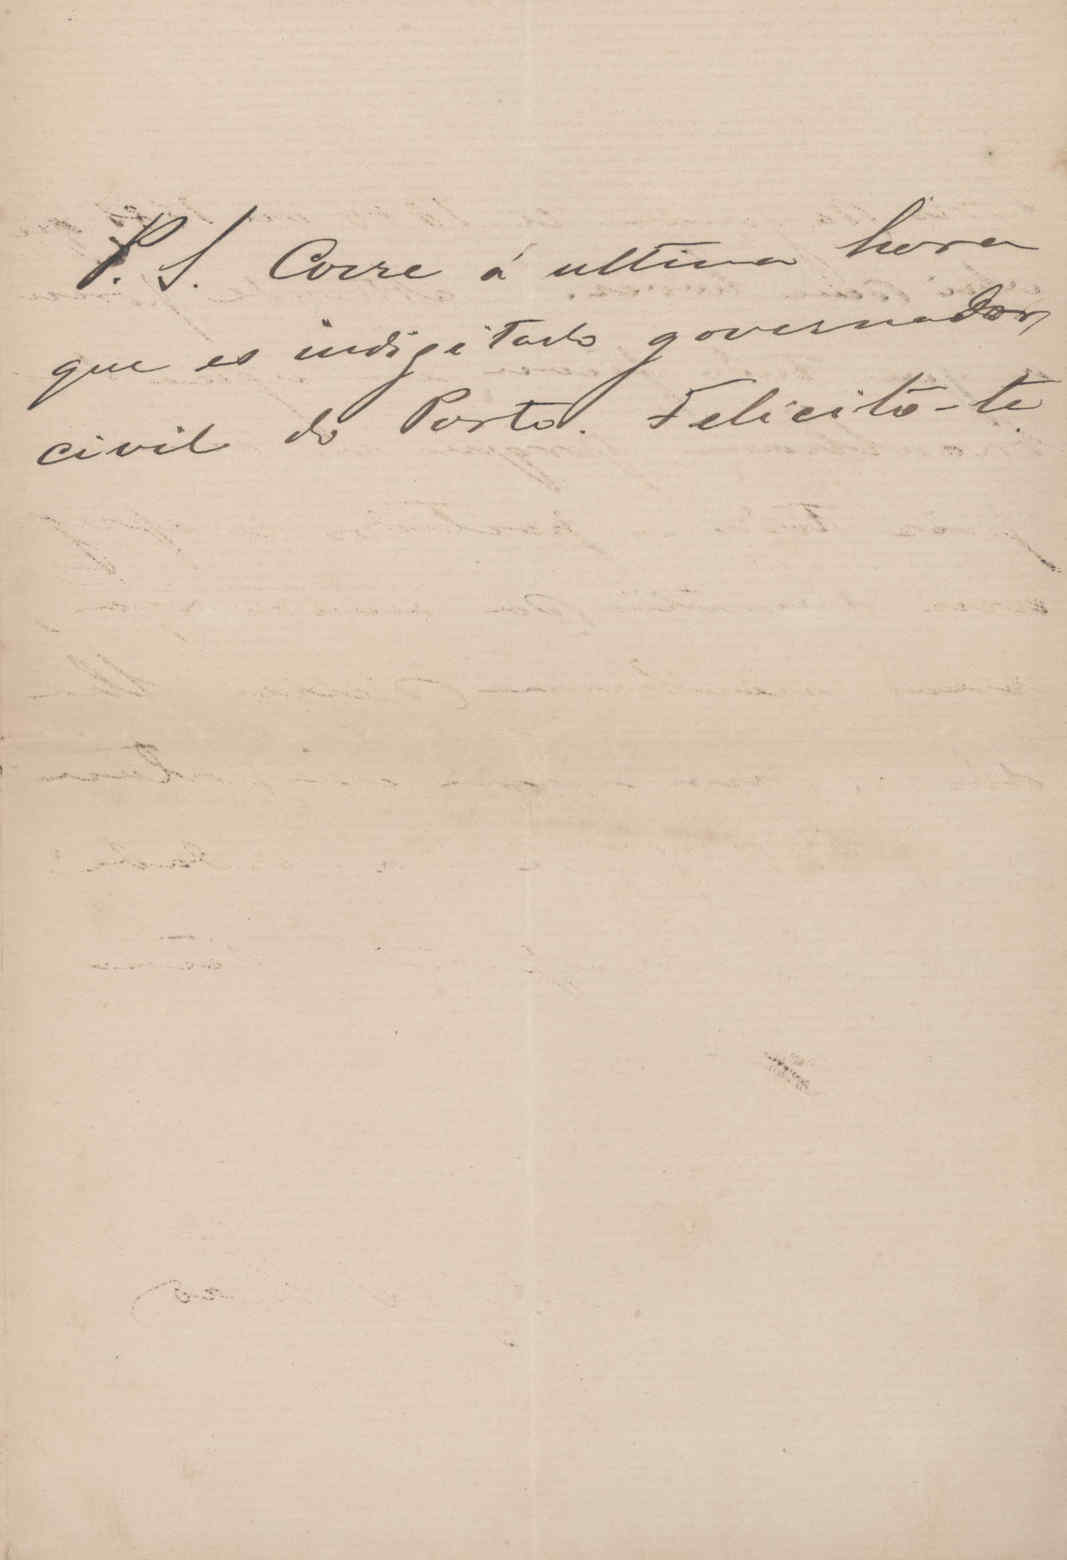 P. S. Corre á ultima hora
que es indigitado governador
civil do Porto. Felicito-te